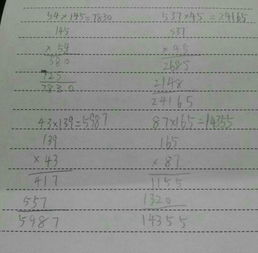 54×145=7830
145
× 54
580
725
7830
537×45=24165
537
× 45
2685
2148
24165
43×139=5987
139
× 43
417
557
5987
87×165=14355
165
× 87
1155
1320
14355